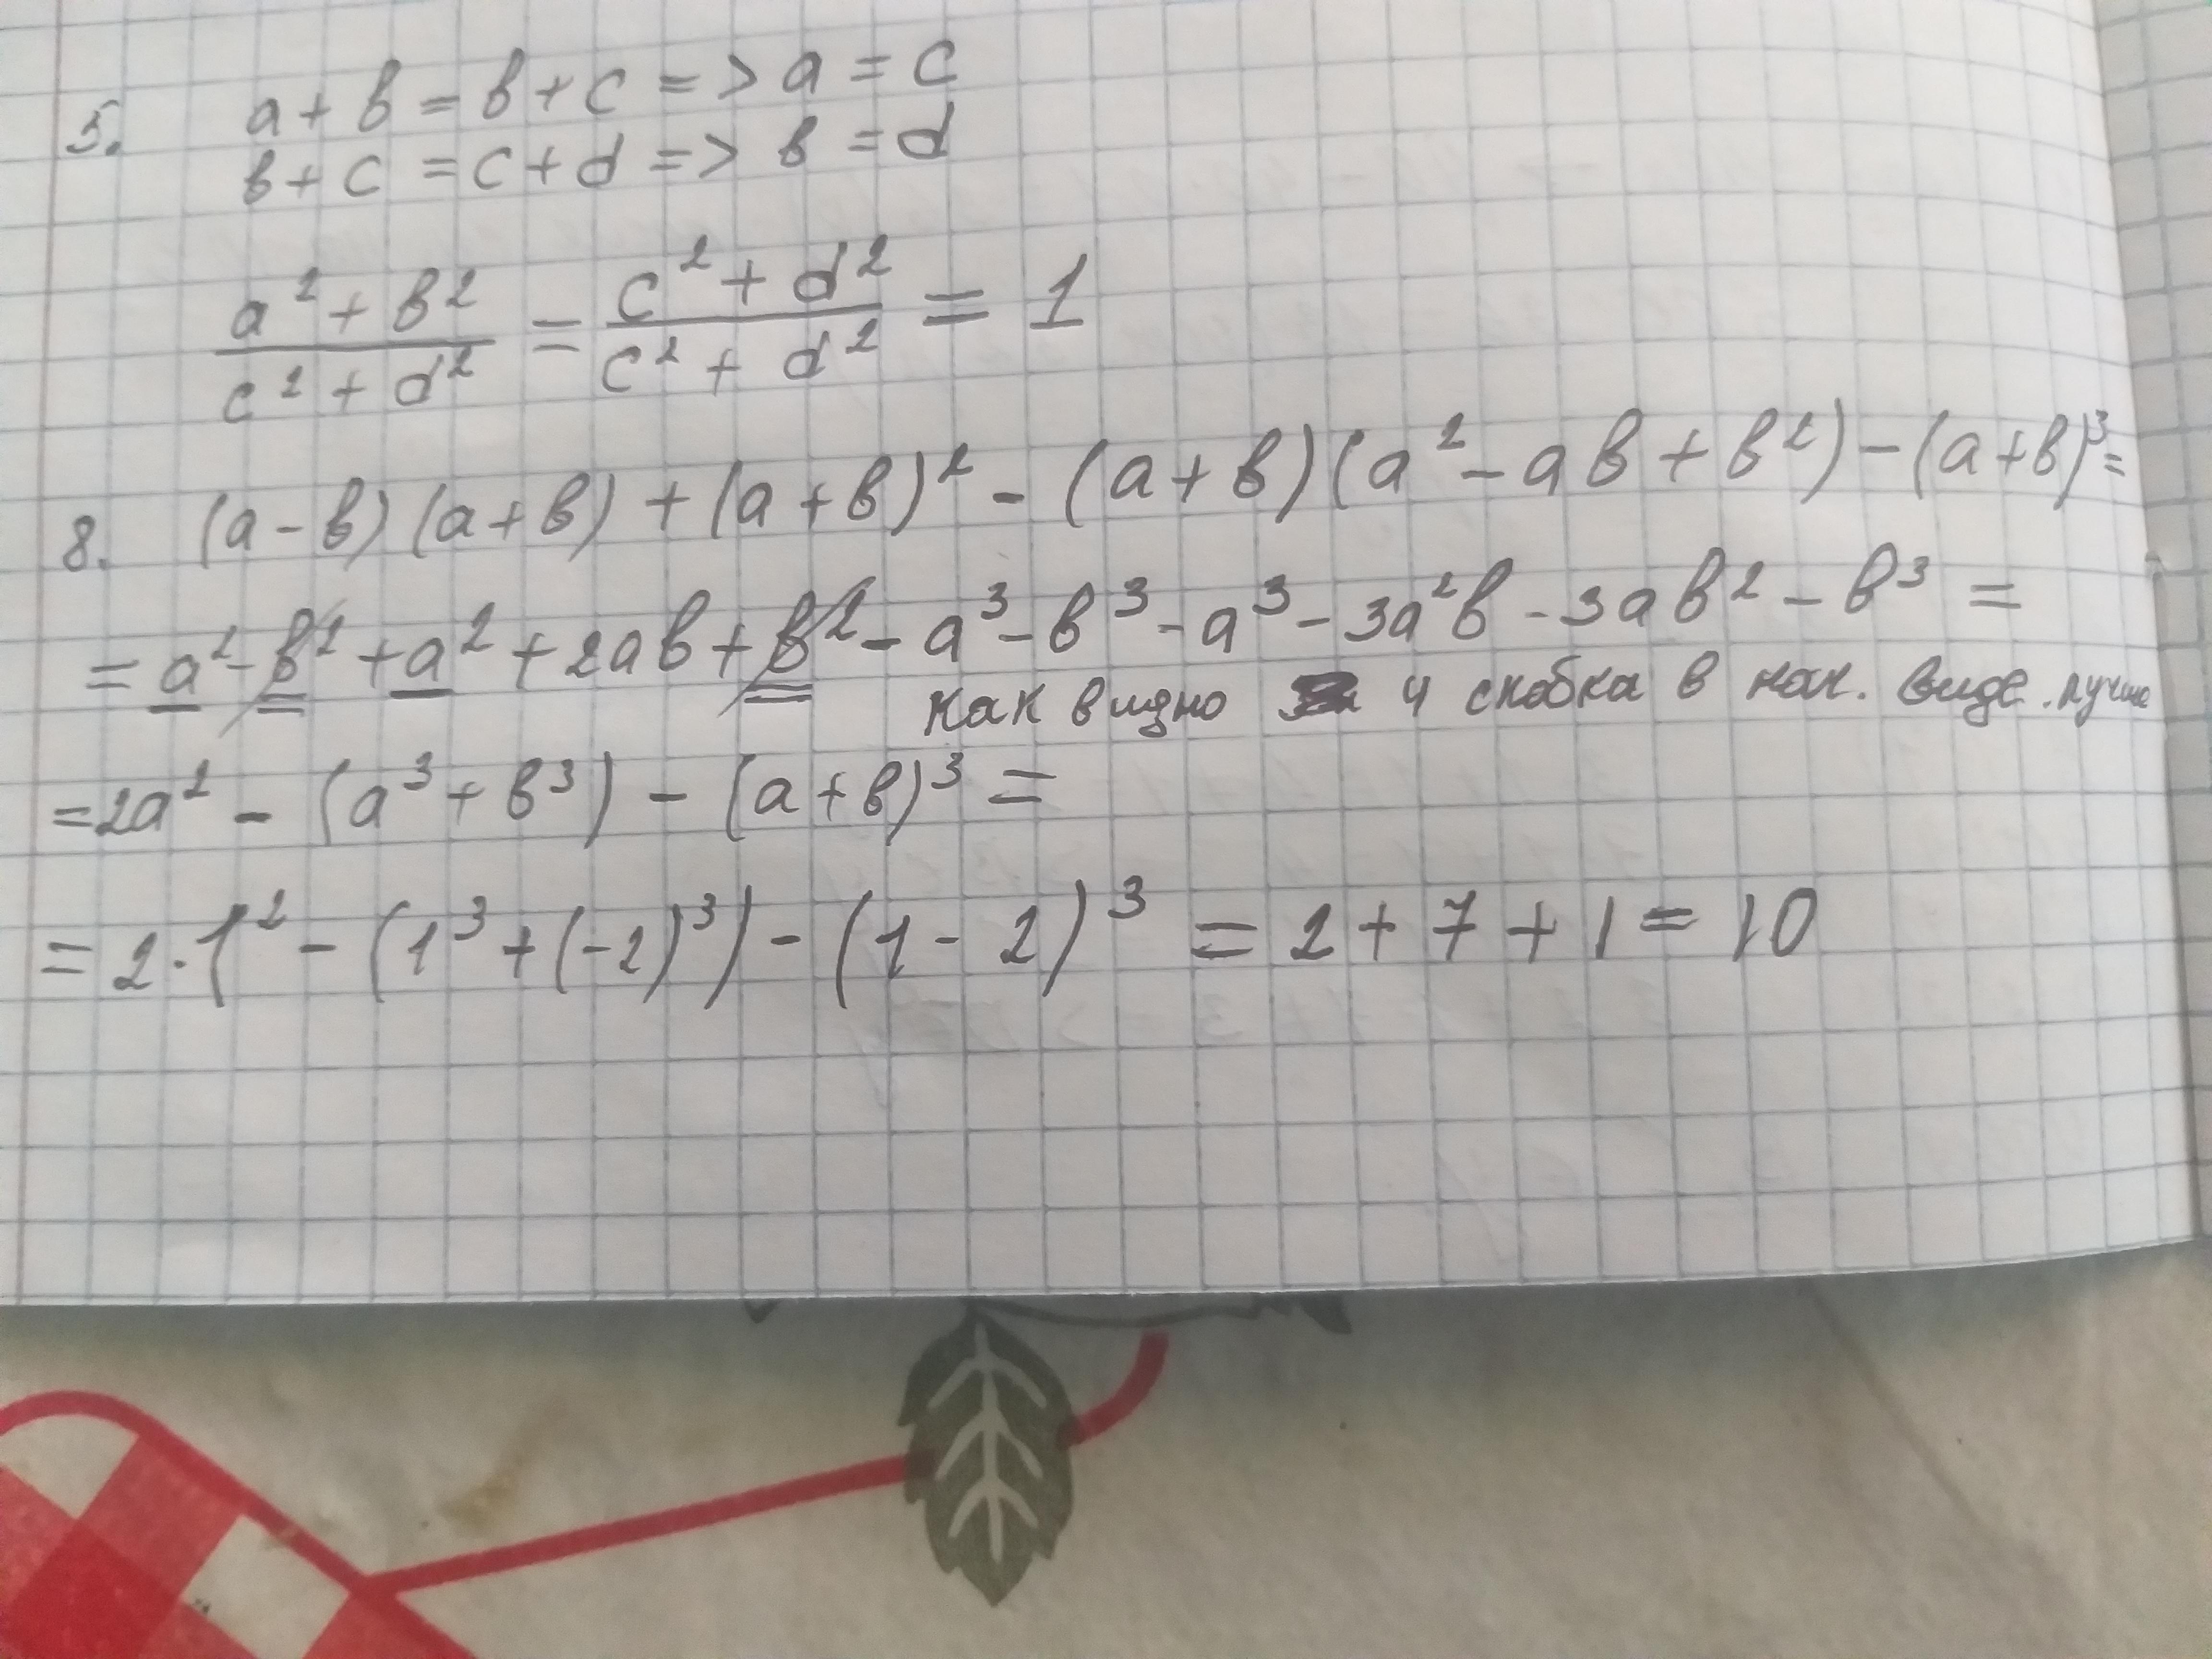 5. a + в = в + c => a = c
в + c = c + d => в = d
a² + в² / c² + d² = c² + d² / c² + d² = 1
8. (a - в) (a + в) + (a + в)² - (a + в) (a² - aв + в²) - (a + в)³ =
= a² - в² + a² + 2aв + в² - a³ - в³ - a³ - 3a²в - 3aв² - в³ =
как видно 4 скобка в нач. виде лучше
= 2a² - (a³ + в³) - (a + в)³ =
= 2 · 1² - (1³ + (-2)³) - (1 - 2)³ = 2 + 7 + 1 = 10